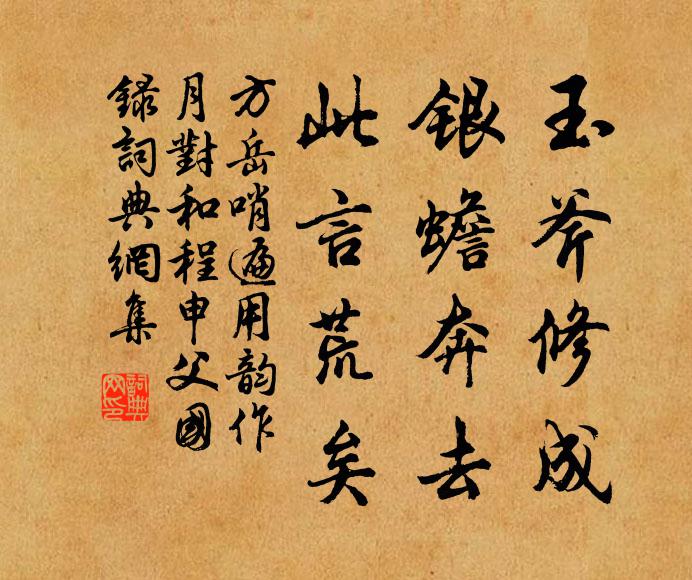 玉斧修成
銀蟾奔去
此言荒矣
方岳哨遍用韵作
月對和程申父國
錄詞典網集
詞典网印